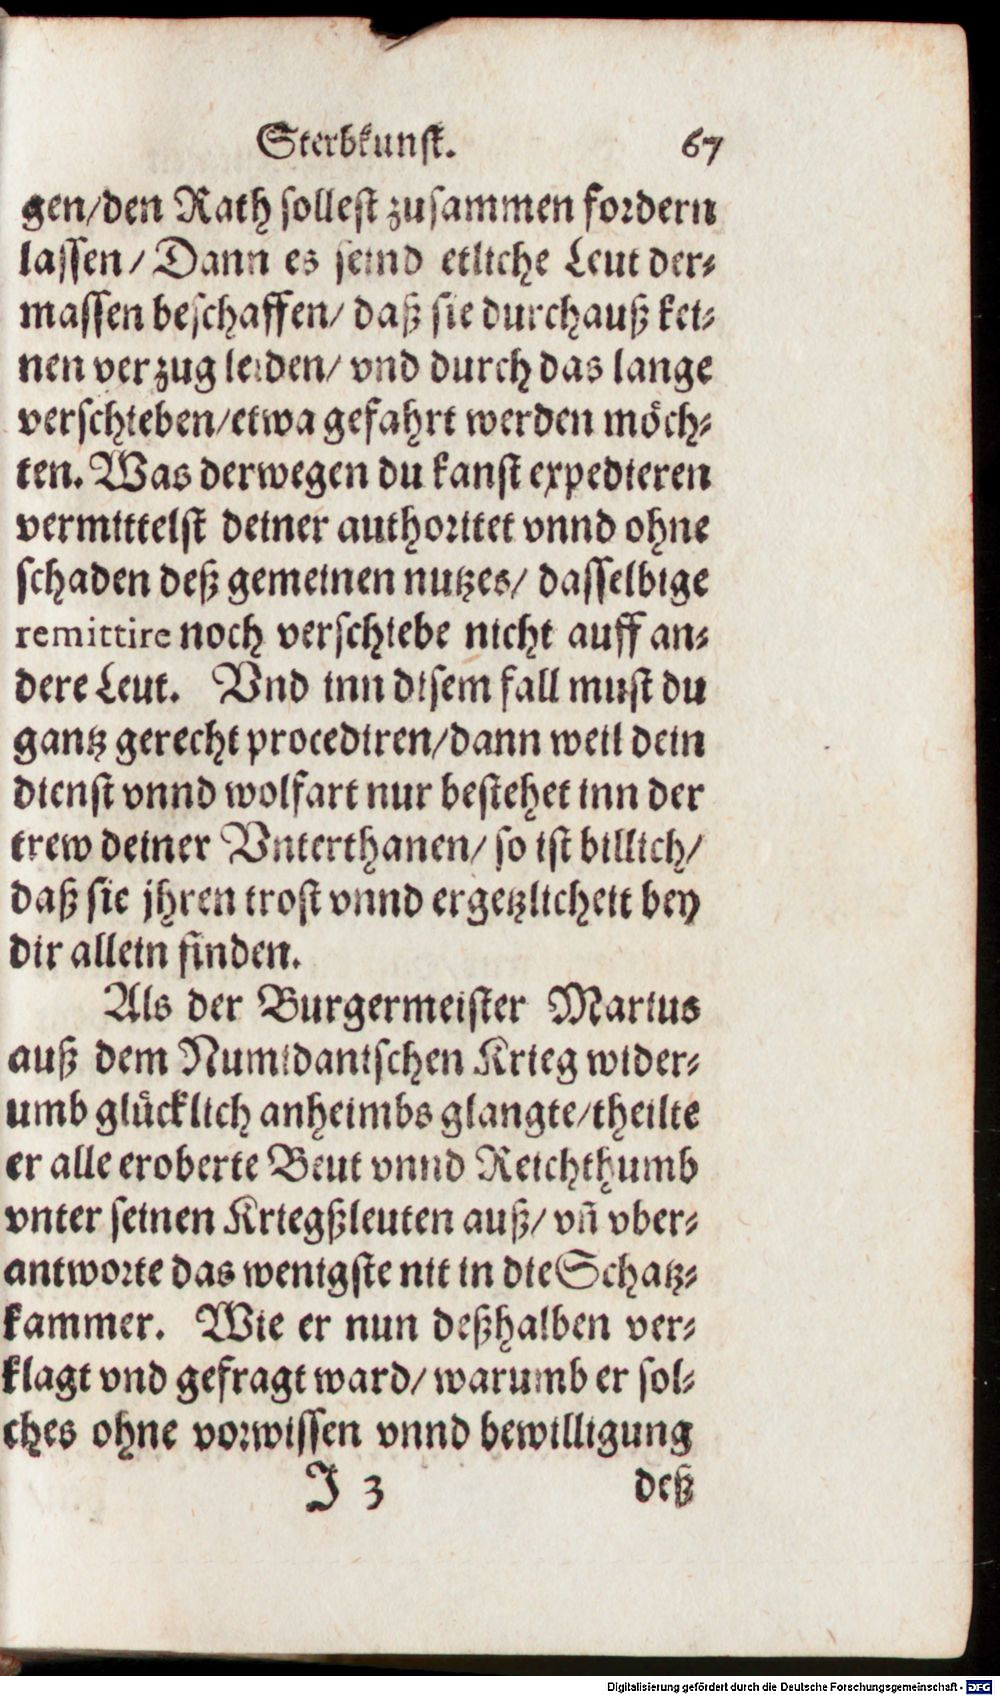 Sterbkunst. 67
gen/den Rath sollest zusammen fordern
lassen/ Dann es seind etliche Leut der-
massen beschaffen/ daß sie durchauß kei-
nen verzug leiden/ vnd durch das lange
verschieben/etwa gefahrt werden möch-
ten. Was derwegen du kanst expedieren
vermittelst deiner authoritet vnnd ohne
schaden deß gemeinen nutzes/ dasselbige
remittire noch verschiebe nicht auff an-
dere Leut. Vnd inn disem fall must du
gantz gerecht procediren/dann weil dein
dienst vnnd wolfart nur bestehet inn der
trew deiner Vnterthanen/ so ist billich/
daß sie jhren trost vnnd ergetzlicheit bey
dir allein finden.
Als der Burgermeister Marius
auß dem Numidanischen Krieg wider-
umb glücklich anheimbs glangte/theilte
er alle eroberte Beut vnnd Reichthumb
vnter seinen Kriegßleuten auß/ vñ vber-
antworte das wenigste nit in die Schatz-
kammer. Wie er nun deßhalben ver-
klagt vnd gefragt ward/ warumb er sol-
ches ohne vorwissen vnnd bewilligung
J 3 deß
Digitalisierung gefördert durch die Deutsche Forschungsgemeinschaft - DFG